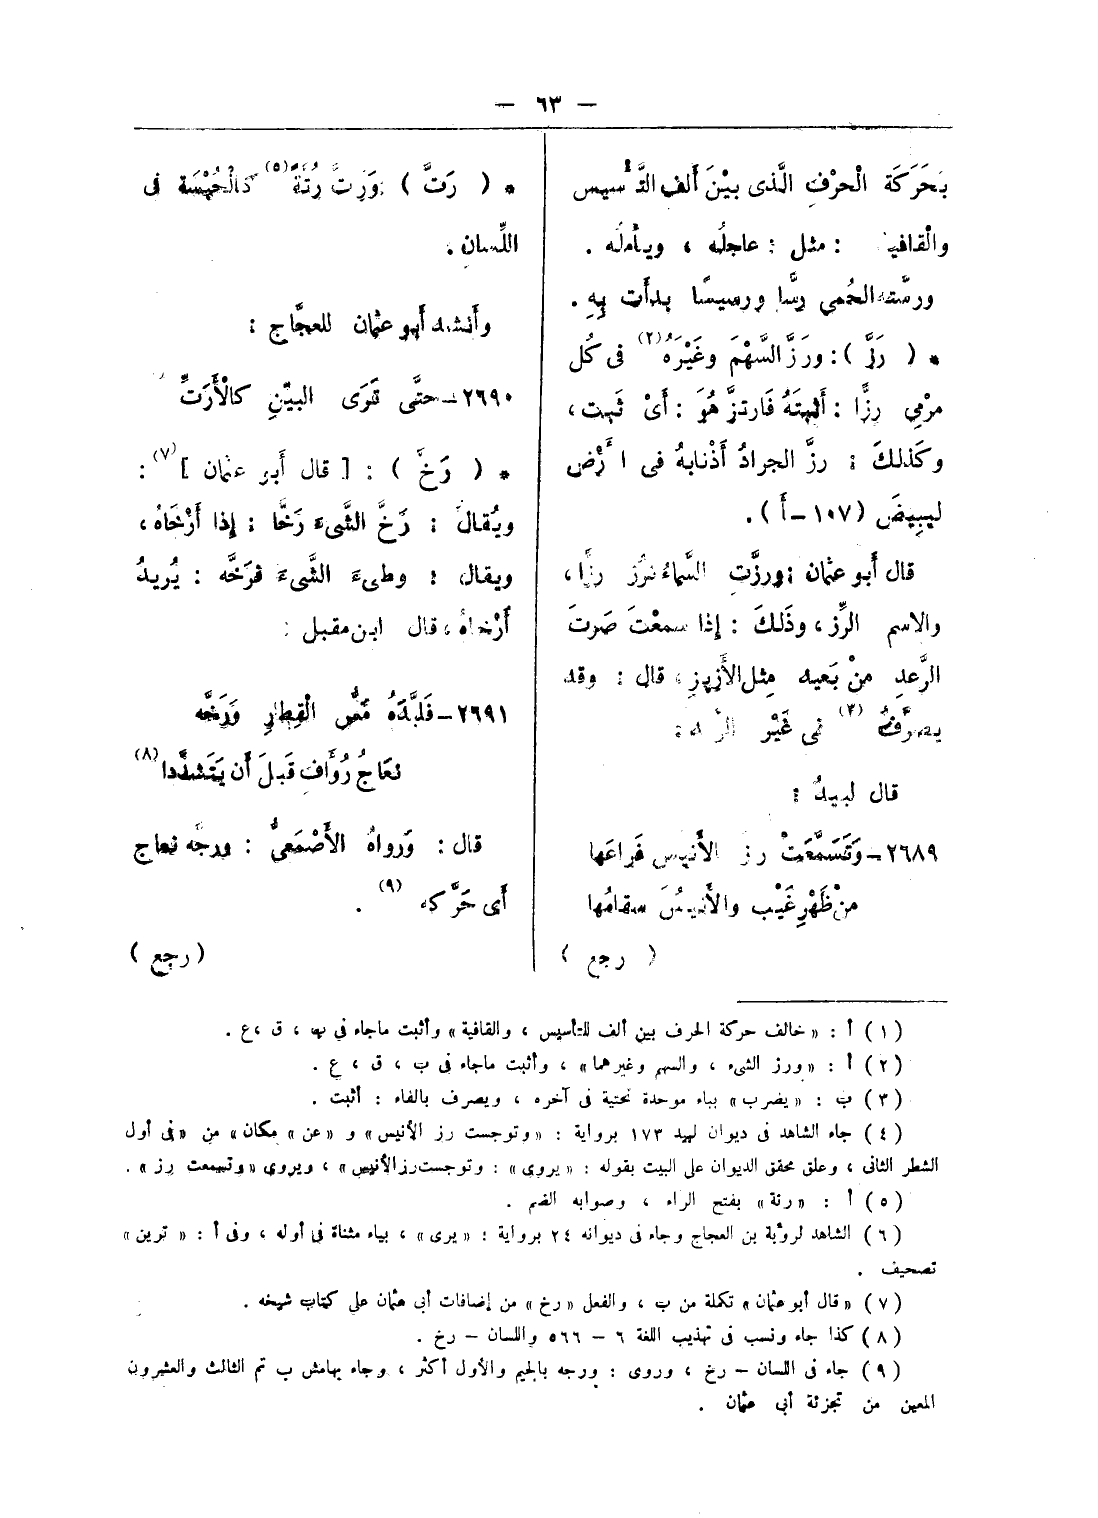 — ٦٣ —
بحَرَكَة الْحرْفِ الَّذى بيْنَ ألف التَّأْسيس
والْقافية : مثل : عاجلُه ، ويأملُه .
ورسَّته الحُمى رسًّا ورسيسًا بدأت بِهِ .
* ( رَزَّ ) : ورَزَّ السَّهْمَ وغَيْرَهُ (٢) فى كُل
مرْمِى رزًّا : أثبتَهُ فَارتزَّ هُوَ : أىْ ثَبت ،
وكَذلكَ : رزَّ الجرادُ أذْنابهُ فى الأرْض
ليبِيضَ (١٠٧ – أ ) .
قال أبو عثمان : ورزَّتِ السَّماءُ ترُز رزًّا ،
والاسم الرِّز ، وذَلكَ : إذا سمعْتَ صَوتَ
الرَّعدِ منْ بَعيد مِثل الأزِيزِ ، قال : وقد
يصرَّفُ (٣) فى غَيْر
قال لبيدُ :
٢٦٨٩ – وَتَسَمَّعَتْ رز الأنيس فَراعَها
منْ ظَهْرِ غَيْب والأنيسُ سقامُها
( رجع )
* ( رَتَّ ) ورَتَّ رُتَةً (٥) كالْحُبْسَة فى
اللِّسانِ .
وأنشد أبو عثمان للعجَّاج :
٢٦٩٠ – حتَّى تَرَى البيّنِ كالْأَرَتِّ
* ( رَخَّ ) : [ قال أبو عثمان ] (٧) :
ويُقالُ : رَخَّ الشَّىءَ رَخَّا : إذا أرْخَاهُ ،
ويقال : وطىءَ الشَّىءَ فرَخَّه : يُريدُ
أرْخاهُ ، قال ابن مقبل :
٢٦٩١ – فَلبَّدَهُ مَسُّ الْقِطارِ وَرَخَّه
نعَاجُ رُؤَافٍ قَبلَ أن يَتَشدَّدا (٨)
قال : وَرواهُ الأَصْمَعىُّ : ورجَّه نعاج
أى حَرَّكه (٩) .
( رجع )
( ١ ) أ : « خالف حركة الحرف بين ألف للتأسيس ، والقافية » وأثبت ماجاء فى ب ، ق ، ع .
( ٢ ) أ : « ورز الشىء ، والسهم وغيرهما » ، وأثبت ماجاء فى ب ، ق ، ع .
( ٣ ) ب : « يضرب » بباء موحدة تحتية فى آخره ، ويصرف بالفاء : أثبت .
( ٤ ) جاء الشاهد فى ديوان لبيد ١٧٣ برواية : « وتوجست رز الأنيس » و « عن » مكان « من » فى أول
الشطر الثانى ، وعلق محقق الديوان على البيت بقوله : « يروى » : وتوجست رز الأنيس » ، ويروى « وتسمعت رز » .
( ٥ ) أ : « رتة » بفتح الراء ، وصوابه الضم .
( ٦ ) الشاهد لرؤبة بن العجاج وجاء فى ديوانه ٢٤ برواية : « يرى » ، بياء مثناة فى أوله ، وفى أ : « ترين »
تصحيف .
( ٧ ) « قال أبو عثمان » تكملة من ب ، والفعل « رخ » من إضافات أبى عثمان على كتاب شيخه .
( ٨ ) كذا جاء ونسب فى تهذيب اللغة ٦ – ٥٦٦ واللسان – رخ .
( ٩ ) جاء فى اللسان – رخ ، وروى : ورجه بالجيم والأول أكثر ، وجاء بهامش ب تم الثالث والعشرون
المعين من تجزئة أبى عثمان .